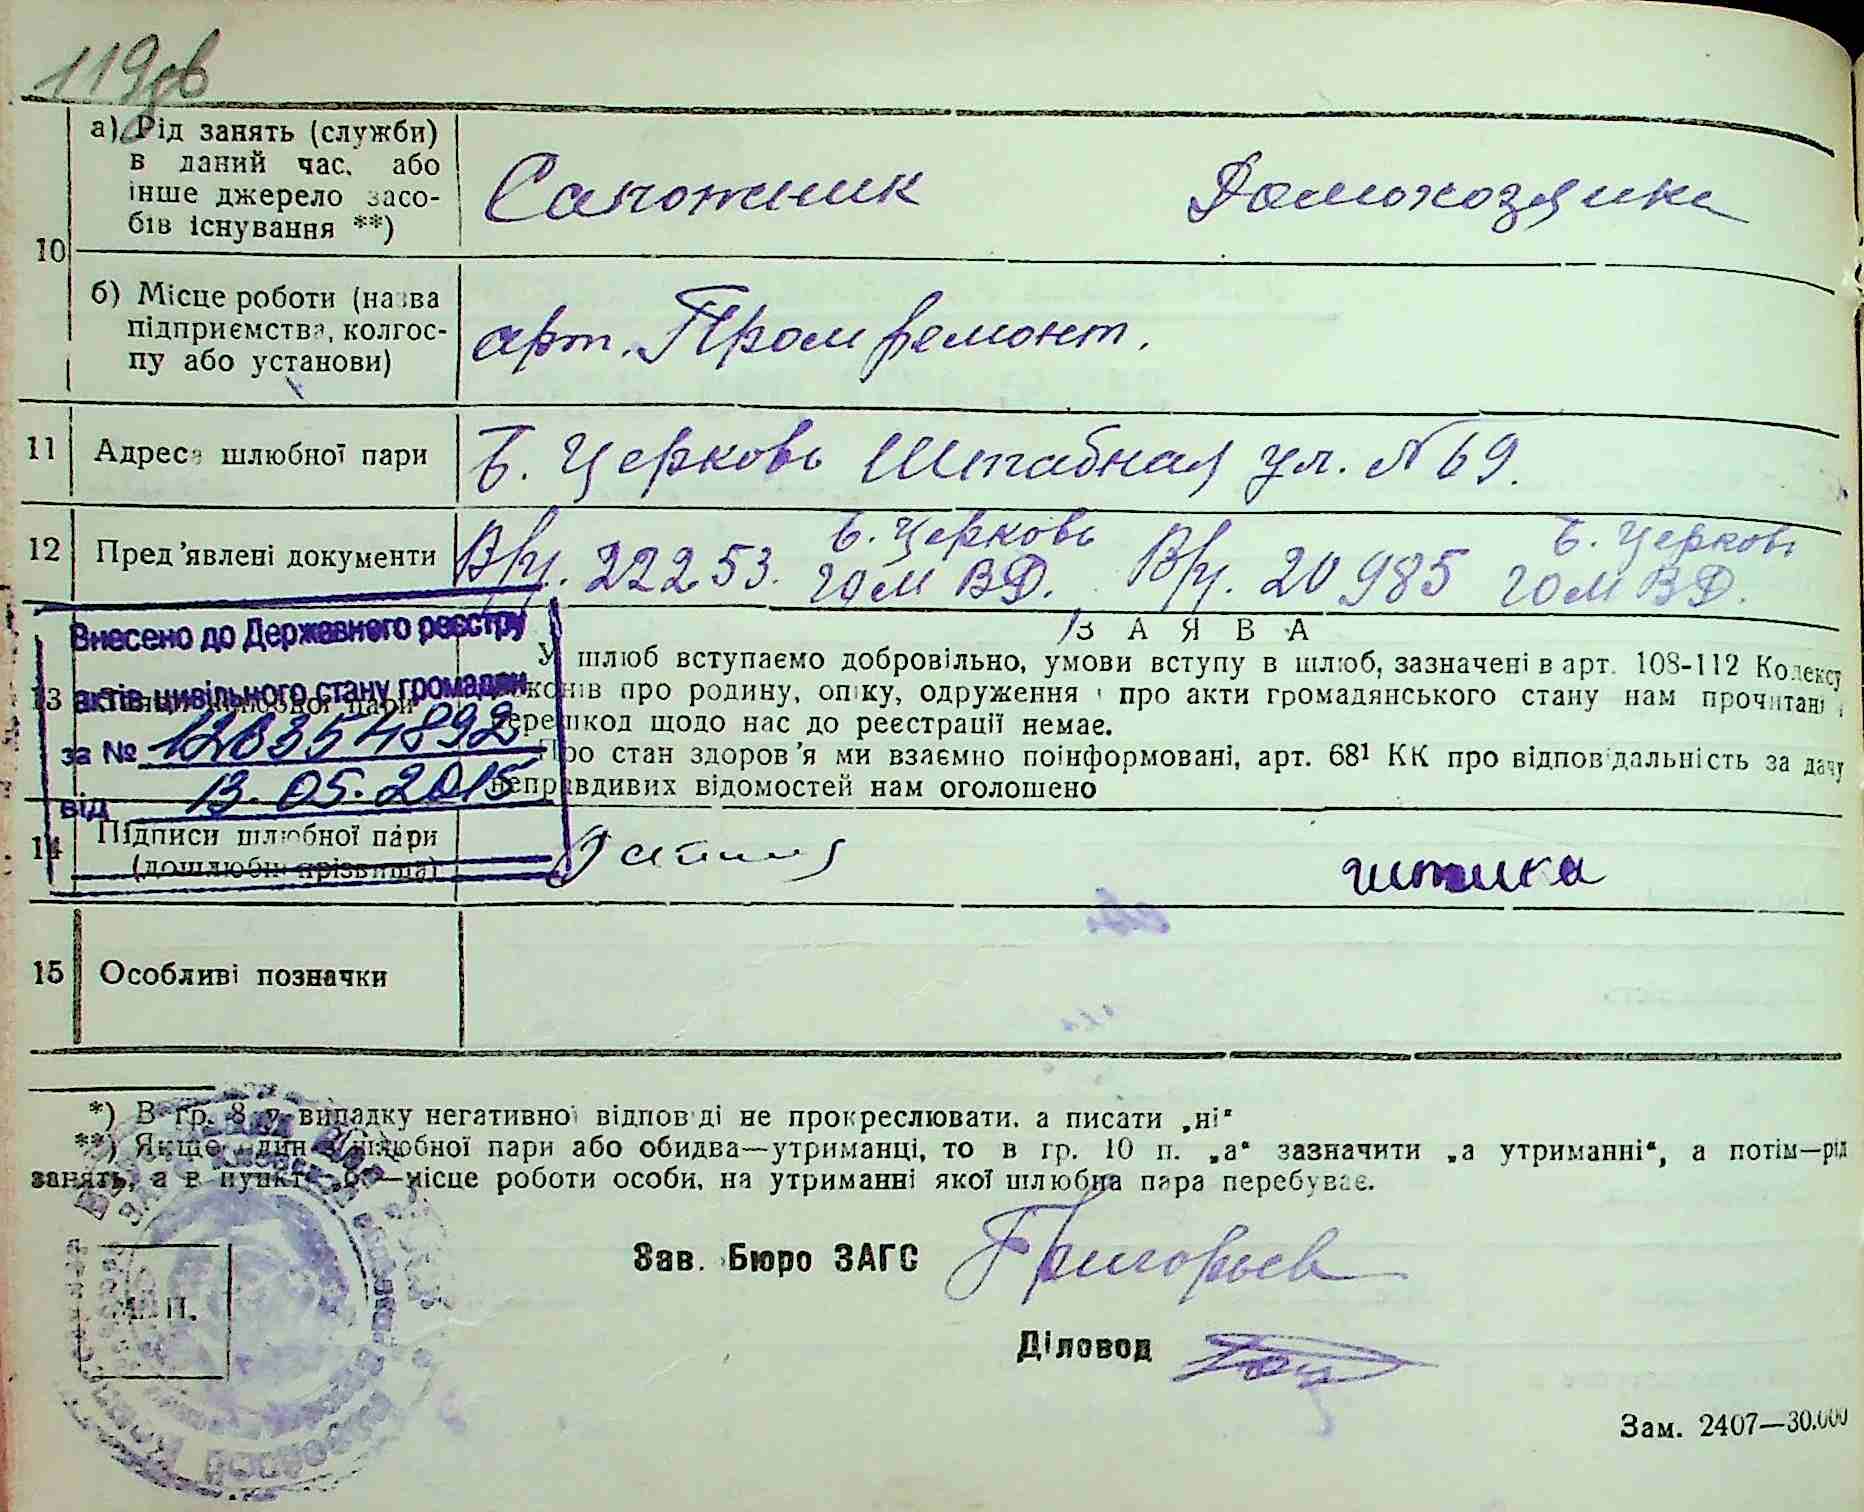 119зв
10
а) Рід занять (служби)
в даний час, або
інше джерело засо-
бів існування **)
Сапожник Домохозяйка
б) Місце роботи (назва
підприємства, колгос-
пу або установи)
арт. Промремонт.
11 Адреса шлюбної пари Б. Церковь Штабная ул. № 69.
12 Пред'явлені документи 22253. Б. Церковь ГОМ ВД. 20985 Б. Церковь ГОМ ВД.
Внесено до Державного реєстру
актів цивільного стану громадян
за № 12035 48992
від 13.05.2015
ЗАЯВА
13
У шлюб вступаємо добровільно, умови вступу в шлюб, зазначені в арт. 108-112 Кодексу
законів про родину, опіку, одруження і про акти громадянського стану нам прочитані і
перешкод щодо нас до реєстрації немає.
Про стан здоров'я ми взаємно поінформовані, арт. 68¹ КК про відповідальність за дачу
неправдивих відомостей нам оголошено
14 Підписи шлюбної пари
(дошлюбні прізвища)
15 Особливі позначки
*) В гр. 8 у випадку негативної відповіді не прокреслювати, а писати „ні“
**) Якщо один з шлюбної пари або обидва—утриманці, то в гр. 10 п. „а“ зазначити „а утриманні“, а потім—рід
занять, а в пункті „б“—місце роботи особи, на утриманні якої шлюбна пара перебуває.
Зав. Бюро ЗАГС Григорьев
Діловод
М. П.
Зам. 2407—30.000